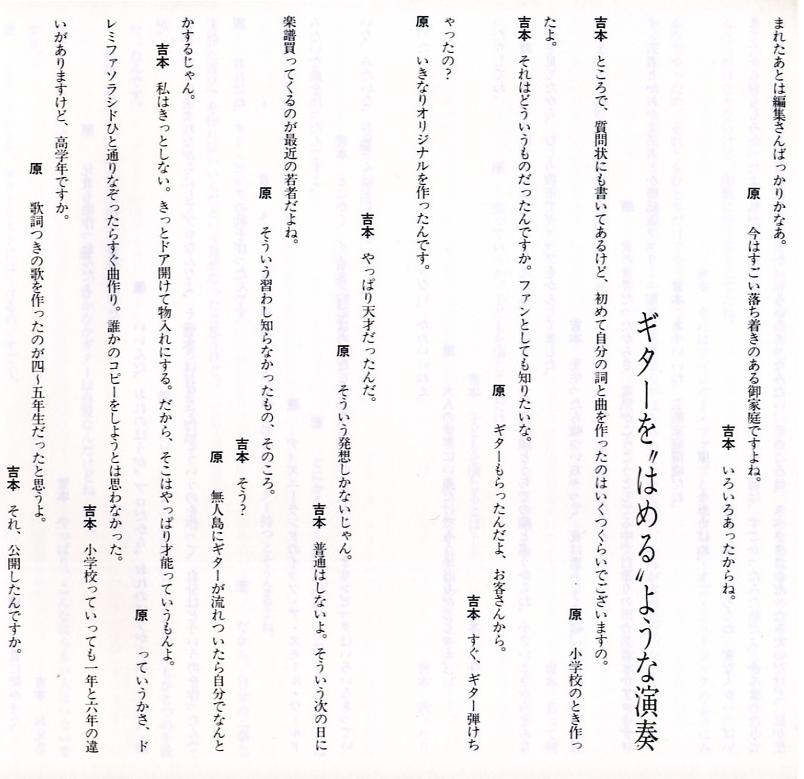 まれたあとは編集さんばっかりかなあ。
原　今はすごい落ち着きのある御家庭ですよね。
吉本　いろいろあったからね。
ギターを〝はめる〟ような演奏
吉本　ところで、質問状にも書いてあるけど、初めて自分の詞と曲を作ったのはいくつくらいでございますの。
原　小学校のとき作っ
たよ。
吉本　それはどういうものだったんですか。ファンとしても知りたいな。
原　ギターもらったんだよ、お客さんから。
吉本　すぐ、ギター弾けち
ゃったの？
原　いきなりオリジナルを作ったんです。
吉本　やっぱり天才だったんだ。
原　そういう発想しかないじゃん。
吉本　普通はしないよ。そういう次の日に
楽譜買ってくるのが最近の若者だよね。
原　そういう習わし知らなかったもの、そのころ。
吉本　そう？
原　無人島にギターが流れついたら自分でなんと
かするじゃん。
吉本　私はきっとしない。きっとドア開けて物入れにする。だから、そこはやっぱり才能っていうもんよ。
原　っていうかさ、ド
レミファソラシドひと通りなぞったらすぐ曲作り。誰かのコピーをしようとは思わなかった。
吉本　小学校っていっても一年と六年の違
いがありますけど、高学年ですか。
原　歌詞つきの歌を作ったのが四〜五年生だったと思うよ。
吉本　それ、公開したんですか。